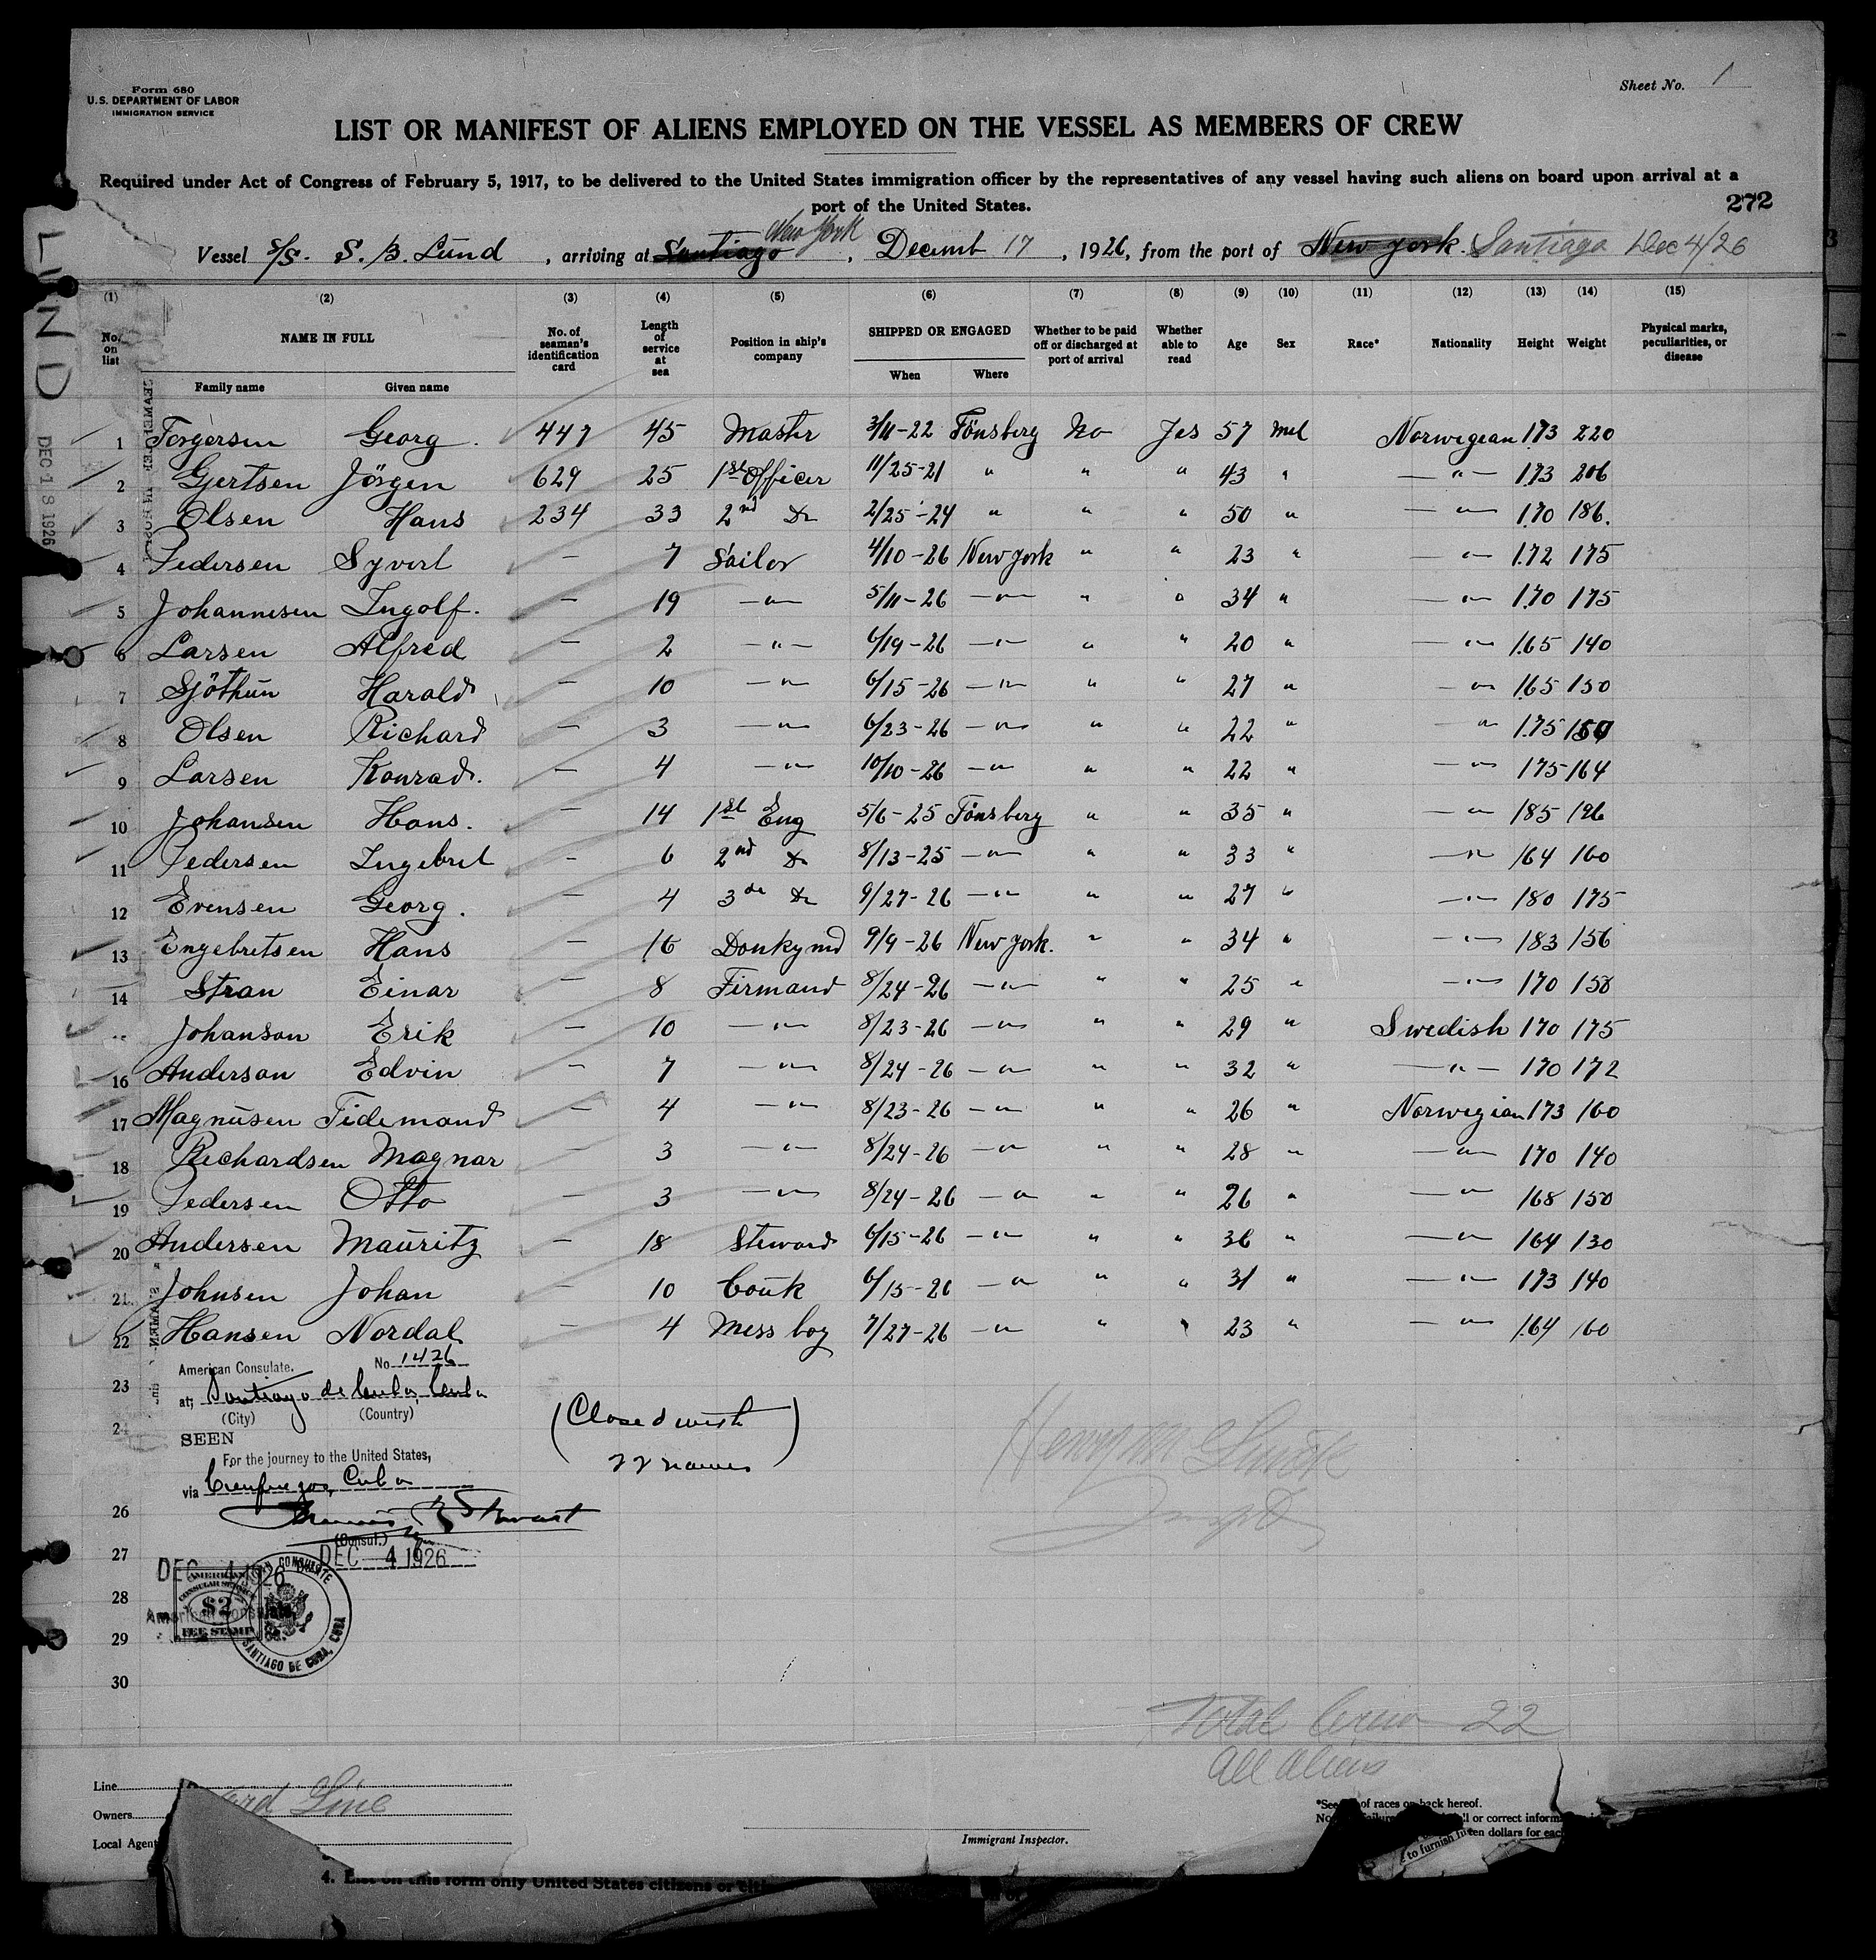 Form 680
U.S. DEPARTMENT OF LABOR
IMMIGRATION SERVICE
Sheet No. 1
LIST OR MANIFEST OF ALIENS EMPLOYED ON THE VESSEL AS MEMBERS OF CREW
Required under Act of Congress of February 5, 1917, to be delivered to the United States immigration officer by the representatives of any vessel having such aliens on board upon arrival at a
port of the United States.
272
Vessel S/S. S. B. Lund , arriving at Santiago New York , Decemb 17 , 1926, from the port of New York. Santiago Dec 4/26
LUND
DEC 18 1926
(1) (2) (3) (4) (5) (6) (7) (8) (9) (10) (11) (12) (13) (14) (15)
No. on list NAME IN FULL Family name Given name No. of seaman's identification card Length of service at sea Position in ship's company SHIPPED OR ENGAGED When Where Whether to be paid off or discharged at port of arrival Whether able to read Age Sex Race* Nationality Height Weight Physical marks, peculiarities, or disease
1 Torgersen Georg. 447 45 Mastr 3/11-22 Tönsberg No Jes 57 Mel Norwegean 173 220
2 Gjertsen Jörgen 629 25 1st Officer 11/25-21 " " " 43 " — " — 173 206
3 Olsen Hans 234 33 2nd Do 2/25-24 " " " 50 " — " — 170 186.
4 Pedersen Syvert — 7 Sailor 4/10-26 New York " " 23 " — " — 172 175
5 Johannesen Ingolf. — 19 — " — 5/11-26 — " — " " 34 " — " — 170 175
6 Larsen Alfred — 2 — " — 6/19-26 — " — " " 20 " — " — 165 140
7 Sjöthun Harald — 10 — " — 6/15-26 — " — " " 27 " — " — 165 150
8 Olsen Richard — 3 — " — 6/23-26 — " — " " 22 " — " — 175
9 Larsen Konrad. — 4 — " — 10/10-26 — " — " " 22 " — " — 175 164
10 Johansen Hans. — 14 1st Eng 5/6-25 Tönsberg " " 35 " — " — 185 196
11 Pedersen Ingebret — 6 2nd Do 8/13-25 — " — " " 33 " — " — 164 160
12 Evensen Georg. — 4 3de Do 9/27-26 — " — " " 27 " — " — 180 175
13 Engebretsen Hans — 16 Donkymd 9/9-26 New York. " " 34 " — " — 183 156
14 Stran Einar — 8 Firmand 8/24-26 — " — " " 25 " — " — 170 158
Johanson Erik — 10 — " — 8/23-26 — " — " " 29 " Swedish 170 175
16 Anderson Edvin — 7 — " — 8/24-26 — " — " " 32 " — " — 170 172
17 Magnusen Tidemand — 4 — " — 8/23-26 — " — " " 26 " Norwegian 173 160
18 Richardsen Magnar — 3 — " — 8/24-26 — " — " " 28 " — " — 170 140
19 Pedersen Otto — 3 — " — 8/24-26 — " — " " 26 " — " — 168 150
20 Andersen Mauritz — 18 Steward 6/15-26 — " — " " 36 " — " — 164 130
21. Johnsen Johan — 10 Couk 6/15-26 — " — " " 31 " — " — 173 140
22 Hansen Nordal — 4 Mess boy 7/27-26 — " — " " 23 " — " — 164 160
American Consulate. No 1426
23
at; Santiago de Cuba, Cuba
(City) (Country)
24
SEEN
For the journey to the United States,
via Cienfuegos, Cuba
(Closed with
22 names)
26
(Consul.)
27
DEC 4 1926
DEC 4 1926
28
AMERICAN CONSULAR SERVICE $2 FEE STAMP
American Consulate
AMERICAN CONSULATE SANTIAGO DE CUBA, CUBA
29
30
Total Crew 22
All Aliens
Line
Owners ard Line
Local Agent
Immigrant Inspector.
*See of races on back hereof.
or correct inform
ten dollars for each
to furnish
4. List on this form only United States citizens or